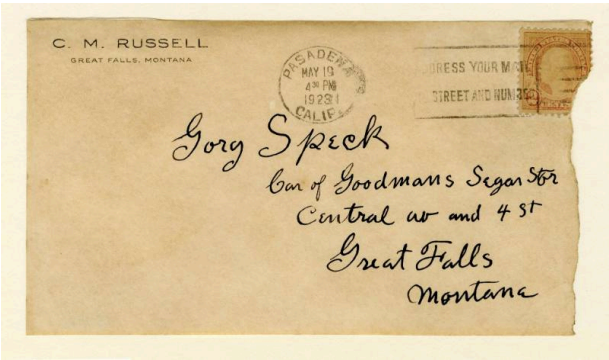 C. M. RUSSELL
GREAT FALLS, MONTANA
PASADENA
MAY 19
4 30 PM
1923
CALIF.
DRESS YOUR MAIL
STREET AND NUMBER
Gorg Speck
Car of Goodmans Segar Stor
Central av and 4 St
Great Falls
Montana